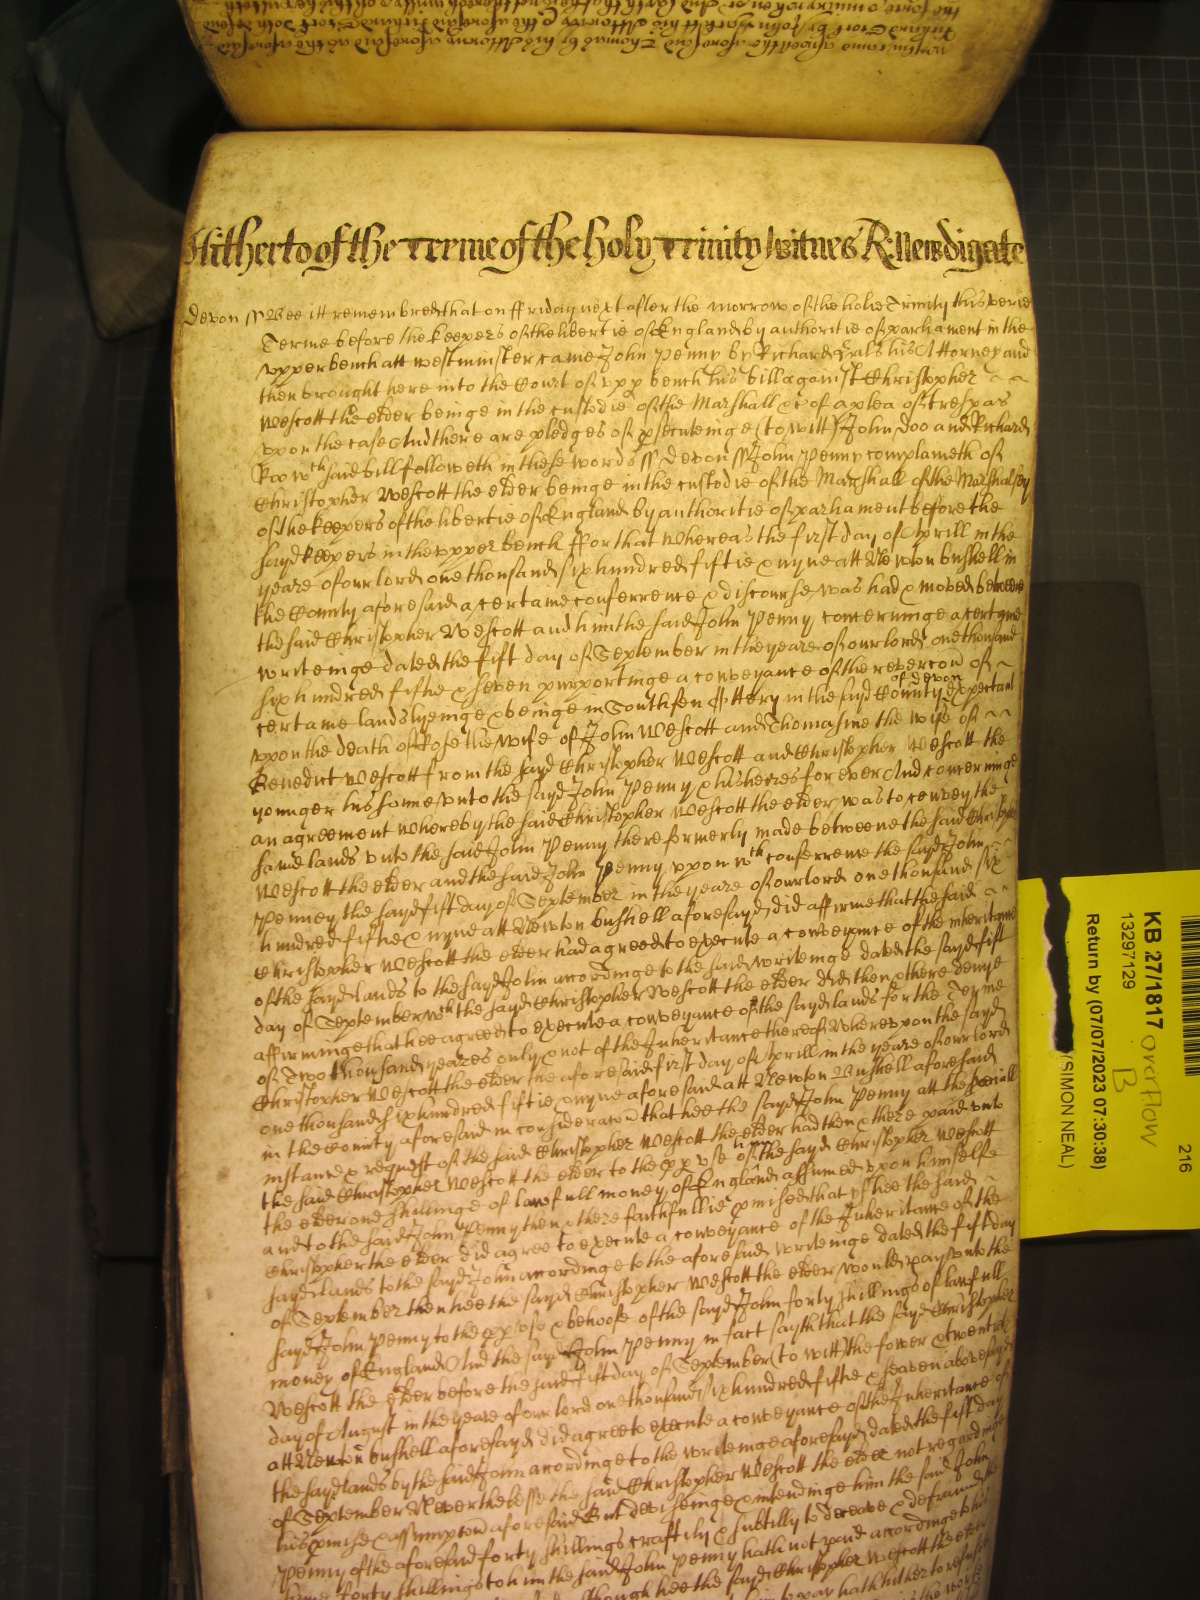 Hitherto of the Terme of the holy Trinity Witnes R: Newdigate
Devon ss Bee itt remembred that on ffriday next after the morrow of the holie Trinity this verie
Terme before the keepers of the libertie of England by authoritie of parliament in the
upper bench att westminster came John Penny by Richard his Attorney and
then brought here into the Court of upp bench his bill against Christopher
Wescott the elder beinge in the custodie of the Marshall &c of a plea of trespas
upon the case And there are pledges of psecuteinge (to witt) John Doo and Richard
Roo wch said bill followeth in these words ss Devon ss John Penny complaineth of
Christopher Wescott the elder beinge in the custodie of the Marshall of the Marshalsey
of the keepers of the libertie of England by authoritie of parliament before the
sayd keepers in the upper bench ffor that whereas the first day of Aprill in the
yeare of our lord one thousand six hundred fiftie & nyne att Newton bushell in
the County aforesaid a certaine conferrence & discourse was had & moved betweene
the said Christopher Wescott and him the said John Penny concerninge a certaine
writeinge dated the fift day of September in the yeare of our lord one thousand
six hundred fiftie & seven purportinge a conveyance of the revercon of
certaine lands lyeinge & beinge in Southsen Ottery in the sayd County of devon Expectant
upon the death of Rose the wife of John Wescott and Thomasine the wife of
Benedict Wescott from the sayd Christopher Wescott and Christopher Wescott the
younger his sonne unto the sayd John Penny & his heires for ever And concerninge
an agreement whereby the said Christopher Wescott the elder was to convey the
same lands unto the said John Penny there formerly made betweene the said Christopher
Wescott the elder and the said John Penny upon wch conferrence the sayd John
Penney the sayd fift day of September in the yeare of our lord one thousand six
hundred fiftie & nyne att Newton bushell aforesayd did affirme that the said
Christopher Wescott the elder had agreed to execute a conveyance of the inheritance
of the sayd lands to the sayd John accordinge to the said writeinge dated the sayd fift
day of September wch the sayd Christopher Wescott the elder did then & there denye
affirminge that hee agreed to execute a conveyance of the sayd lands for the Terme
of Two thousand yeares only & not of the Inheritance thereof Whereupon the sayd
Christopher Wescott the elder the aforesaid first day of Aprill in the yeare of our lord
one thousand six hundred fiftie & nyne aforesaid att Newton Bushell aforesaid
in the County aforesaid in consideracon that hee the sayd John Penny att the speciall
instance & request of the said Christopher Wescott the elder had then & there paid unto
the said Christopher Wescott the elder to the pp use of him the sayd Christopher Wescott
the elder one shillinge of lawfull money of England assumed upon himselfe
and to the said John Penny then & there faithfullie pmised that if hee the said
Christopher the elder did agree to execute a conveyance of the Inheritance of the
sayd lands to the sayd John accordinge to the aforesaid writeinge dated the fift day
of September then hee the sayd Christopher Wescott the elder would pay unto the
sayd John Penny to the pp use & behoofe of the sayd John forty shillings of lawfull
money of England And the sayd John Penny in fact sayth that the sayd Christopher
Wescott the elder before the said fift day of September (to witt) the fower & twentith
day of August in the yeare of our lord one thousand six hundred fiftie & seaven abovesayd
att Newton bushell aforesayd did agree to execute a conveyance of the Inheritance of
the sayd lands by the said John accordinge to the writeinge aforesayd dated the fift day
of September Neverthelesse the said Christopher Wescott the elder not regardinge
his pmise & assumpcon aforesaid But deviseinge & intendinge him the said John
Penny of the aforesaid forty shillings craftily & subtilly to deceave & defraud the
same forty shillings to him the said John Penny hath not paid accordinge to his
though hee the sayd Christopher Wescott the elder
pay hath hitherto refused
KB 27/1817 Overflow
13297129
B
216
Return by (07/07/2023 07:30:38)
(SIMON NEAL)